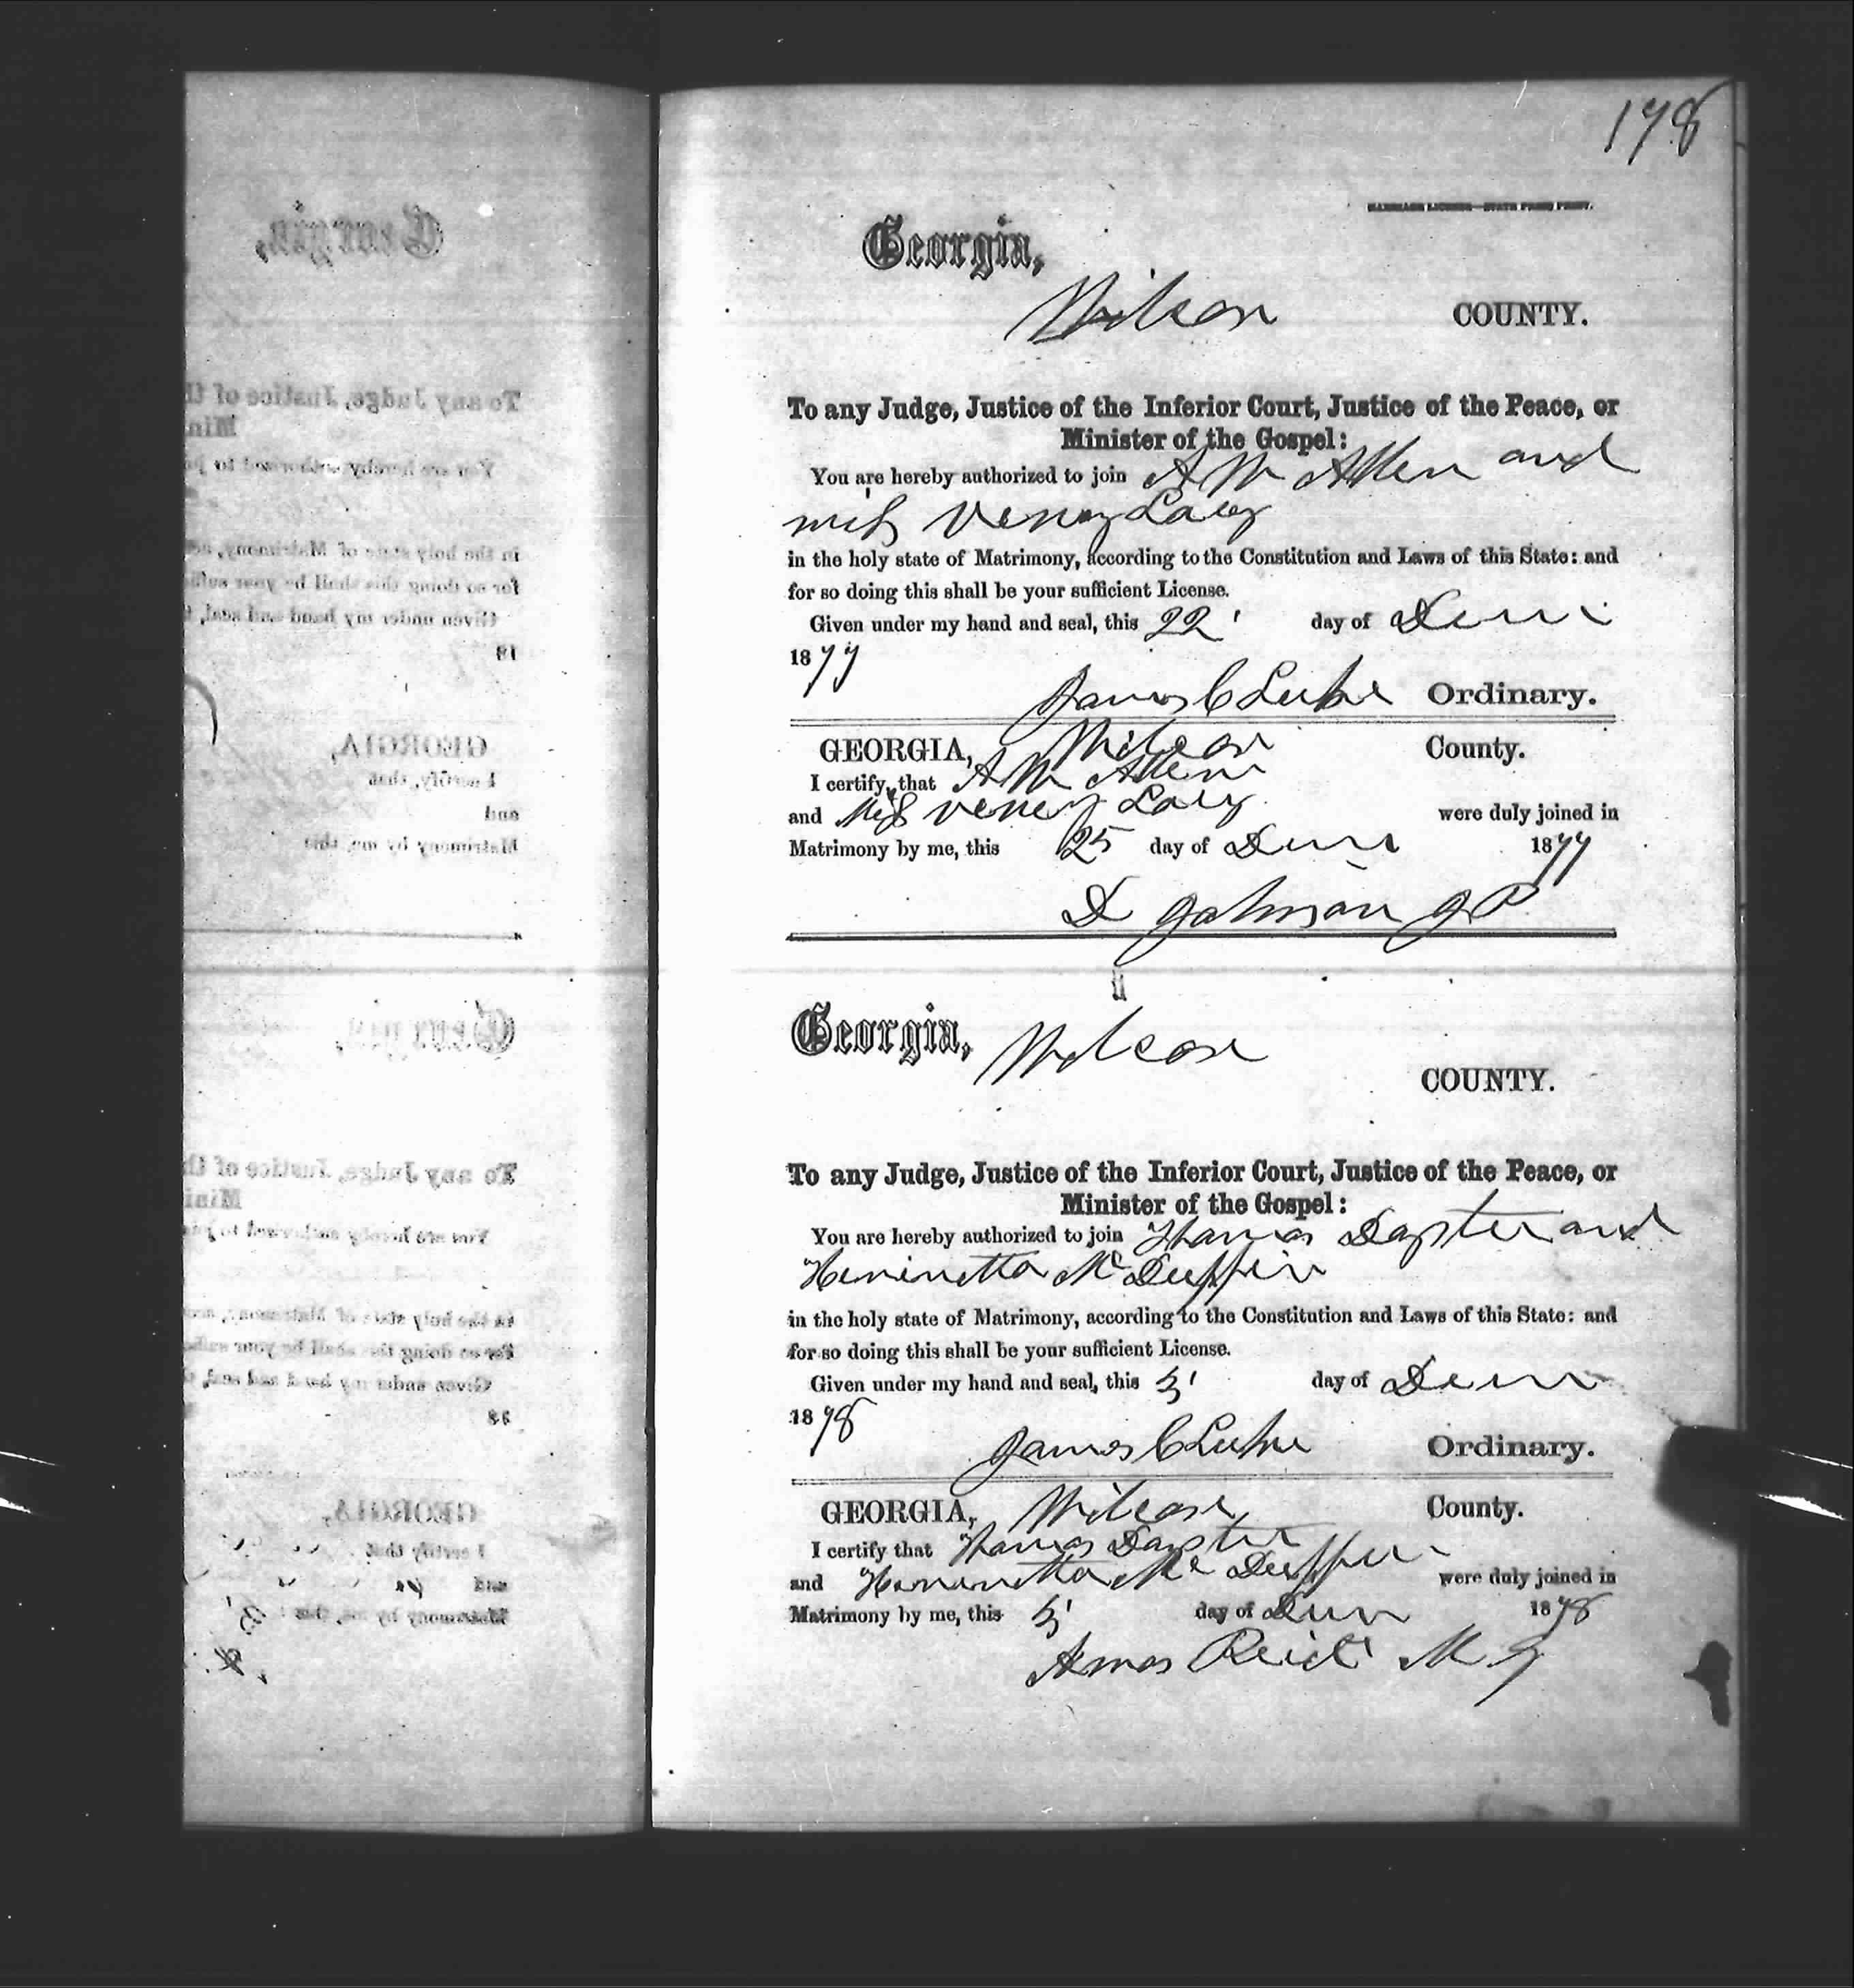 178
MARRIAGE LICENSE—STATE PRESS PRINT.
Georgia,
Wilcox COUNTY.
To any Judge, Justice of the Inferior Court, Justice of the Peace, or
Minister of the Gospel:
You are hereby authorized to join A M Allen and
miss Veney Lacy
in the holy state of Matrimony, according to the Constitution and Laws of this State: and
for so doing this shall be your sufficient License.
Given under my hand and seal, this 22 day of
1877
James C Luke Ordinary.
GEORGIA, Wilcox County.
I certify, that A M Allen
and Miss Veney Lacy were duly joined in
Matrimony by me, this 25 day of 1877
D Johnson JP
Georgia, Wilcox
COUNTY.
To any Judge, Justice of the Inferior Court, Justice of the Peace, or
Minister of the Gospel:
You are hereby authorized to join Thomas and
McDuffie
in the holy state of Matrimony, according to the Constitution and Laws of this State: and
for so doing this shall be your sufficient License.
Given under my hand and seal, this day of
1878
James C Luke Ordinary.
GEORGIA, Wilcox County.
I certify that Thomas
and Mc were duly joined in
Matrimony by me, this day of 1878
Amos Reid M G